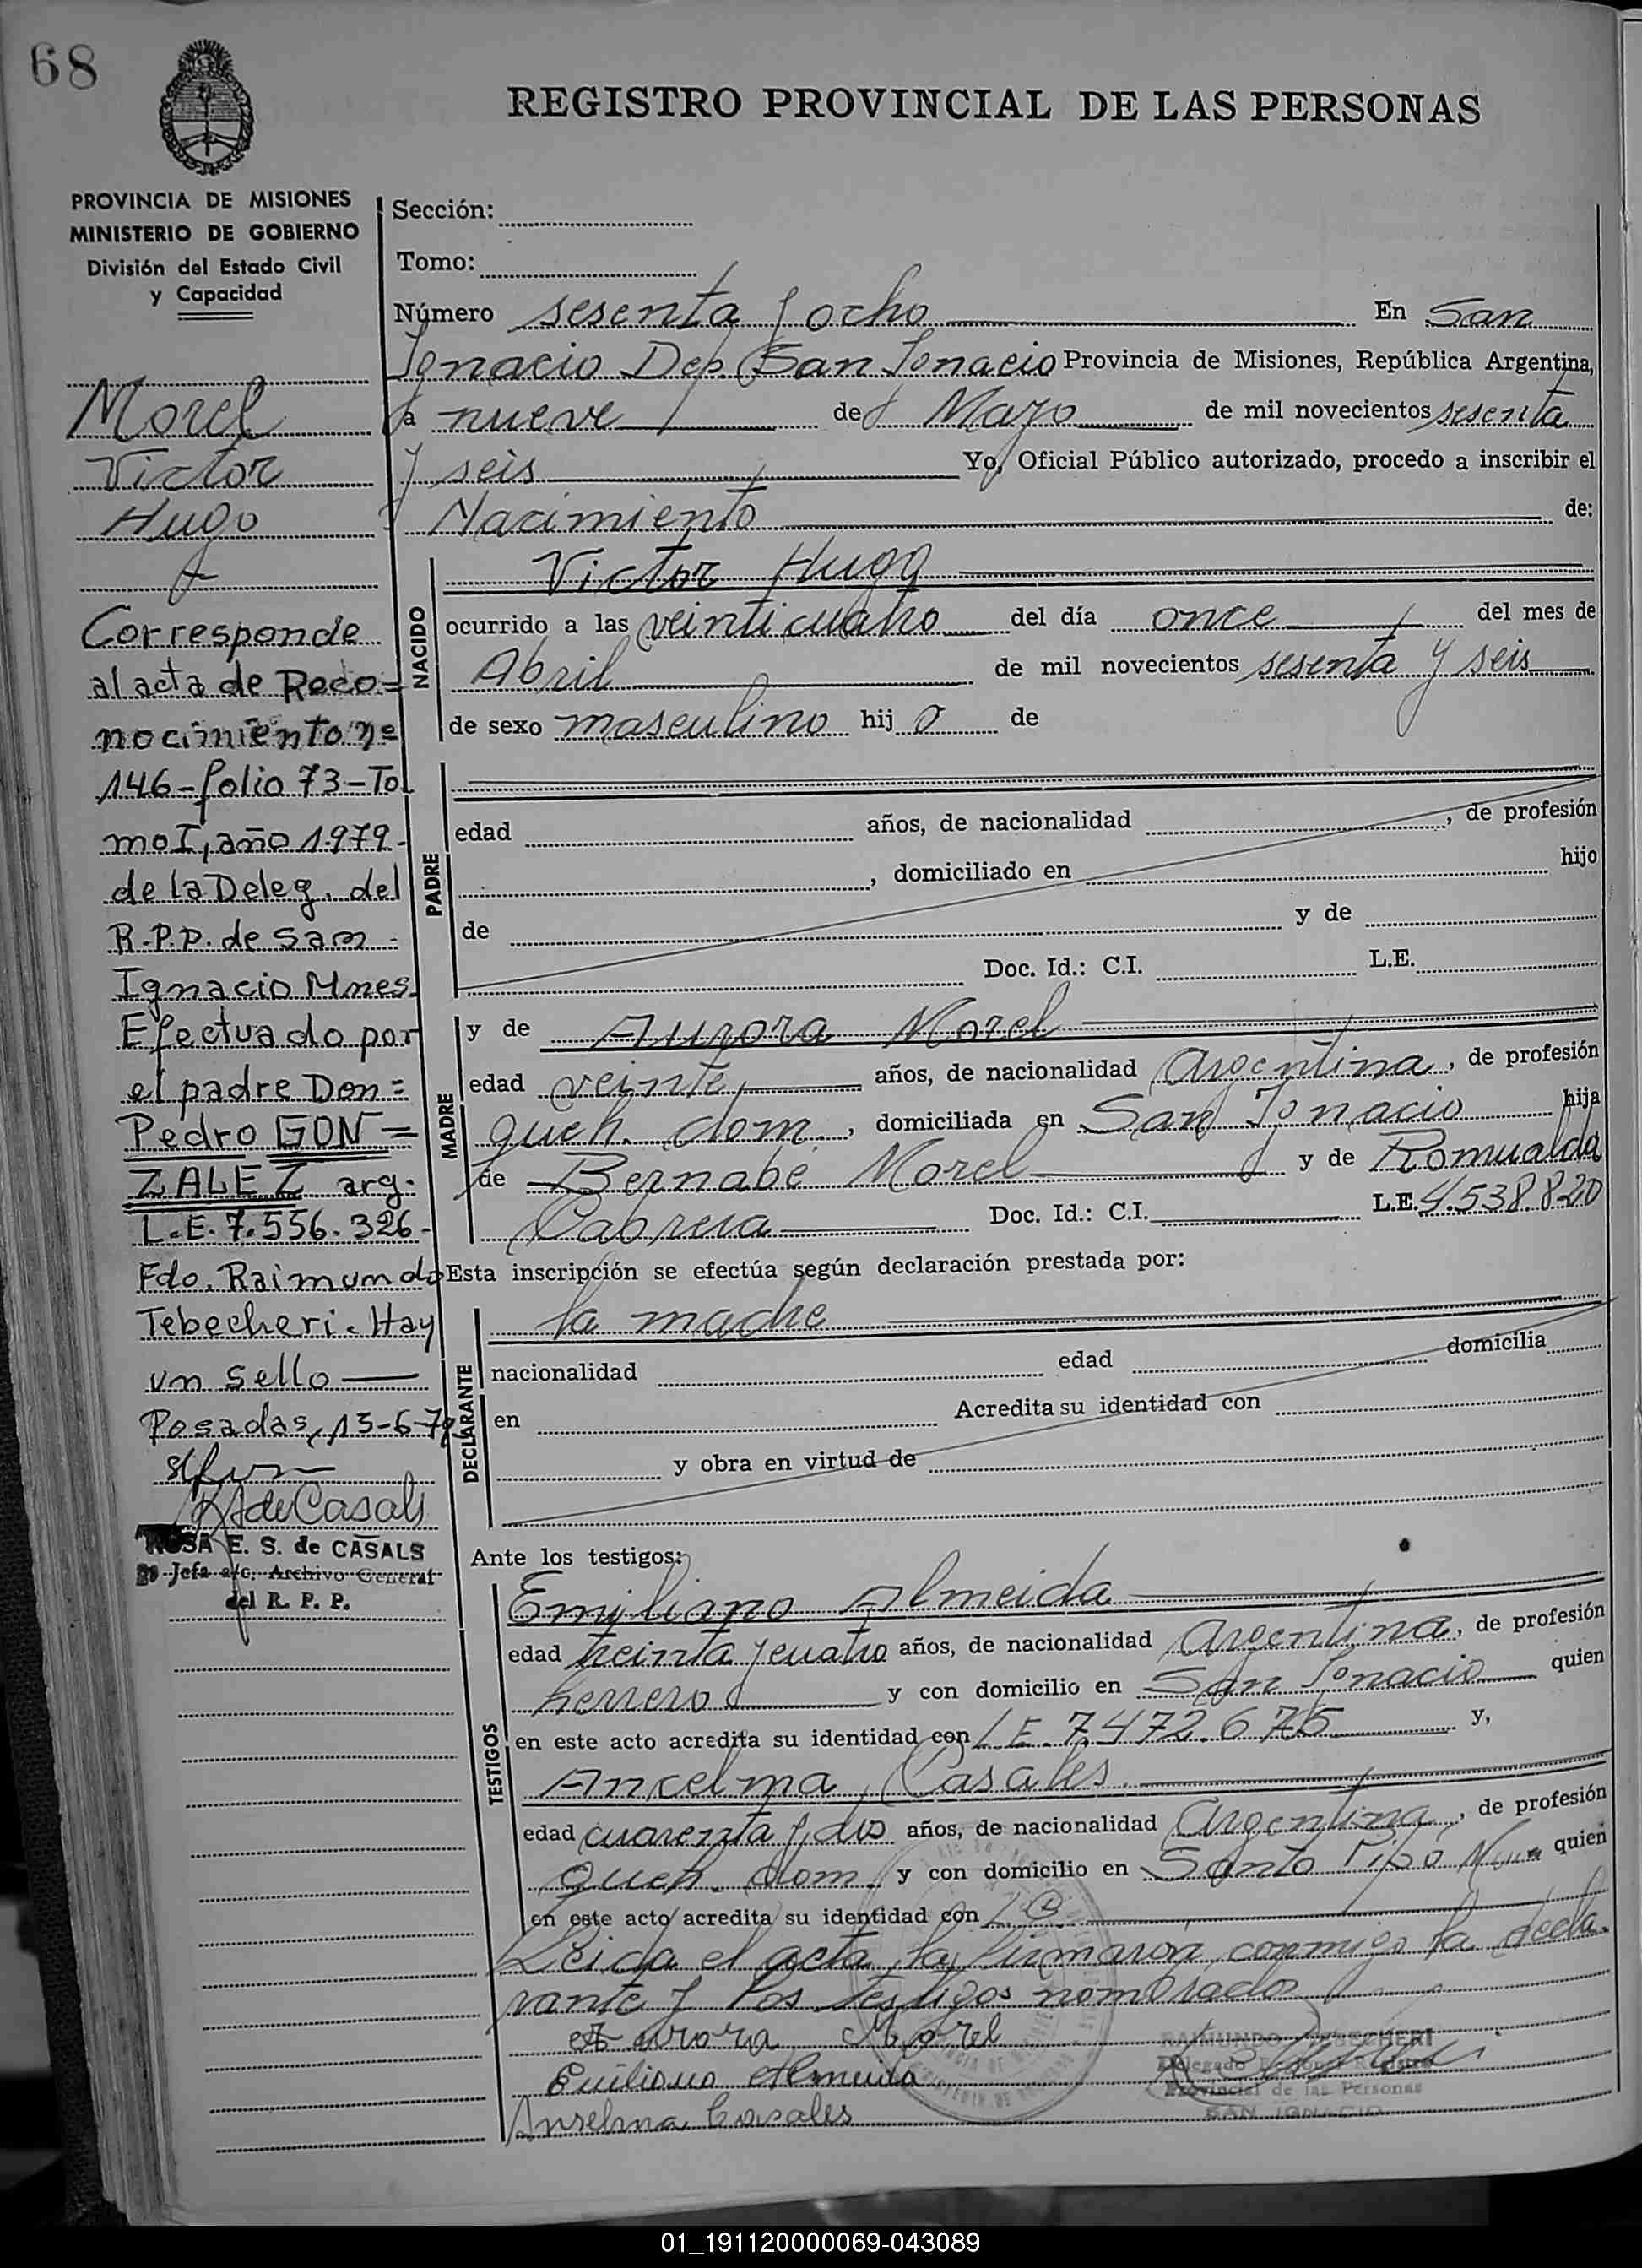 68
REGISTRO PROVINCIAL DE LAS PERSONAS
PROVINCIA DE MISIONES
MINISTERIO DE GOBIERNO
División del Estado Civil
y Capacidad
Morel
Victor
Hugo
Corresponde
al acta de Reco=
nocimiento nº
146-folio 73-To
mo I, año 1.979-
de la Deleg. del
R.P.P. de San -
Ignacio Mnes.
Efectuado por
el padre Don=
Pedro GON=
ZALEZ arg.
L.E. 7.556.326.-
Fdo. Raimundo
Tebecheri. Hay
un sello —
Posadas, 13-6-79
de Casals
ROSA E. S. de CASALS
Jefa a/c. Archivo General
del R. P. P.
Sección:
Tomo:
Número sesenta y ocho En San
Ignacio Dep. San Ignacio Provincia de Misiones, República Argentina,
a nueve de Mayo de mil novecientos sesenta
y seis Yo, Oficial Público autorizado, procedo a inscribir el
Nacimiento de:
NACIDO
Victor Hugo
ocurrido a las veinticuatro del día once del mes de
Abril de mil novecientos sesenta y seis
de sexo masculino hij o de
PADRE
edad años, de nacionalidad , de profesión
, domiciliado en hijo
de y de
Doc. Id.: C.I. L.E.
MADRE
y de Aurora Morel
edad veinte, años, de nacionalidad Argentina, de profesión
queh. dom., domiciliada en San Ignacio hija
de Bernabé Morel y de Romualda
Cabrera Doc. Id.: C.I. L.E. 4.538.820
Esta inscripción se efectúa según declaración prestada por:
DECLARANTE
la madre
nacionalidad edad domicilia
en Acredita su identidad con
y obra en virtud de
Ante los testigos:
TESTIGOS
Emiliano Almeida
edad treinta y cuatro años, de nacionalidad Argentina, de profesión
herrero y con domicilio en San Ignacio quien
en este acto acredita su identidad con L.E. 7.472.675 y,
Ancelma Casales.
edad cuarenta y dos años, de nacionalidad Argentina, de profesión
queh. dom. y con domicilio en Santo Pipó quien
en este acto acredita su identidad con
Leida el acta, la firmaron conmigo la decla-
rante y los testigos nombrado
Aurora Morel
Emiliano Almeida
Anselma Casales
RAIMUNDO TEBECHERI
Delegado Registro
Provincial de las Personas
SAN IGNACIO
01_191120000069-043089